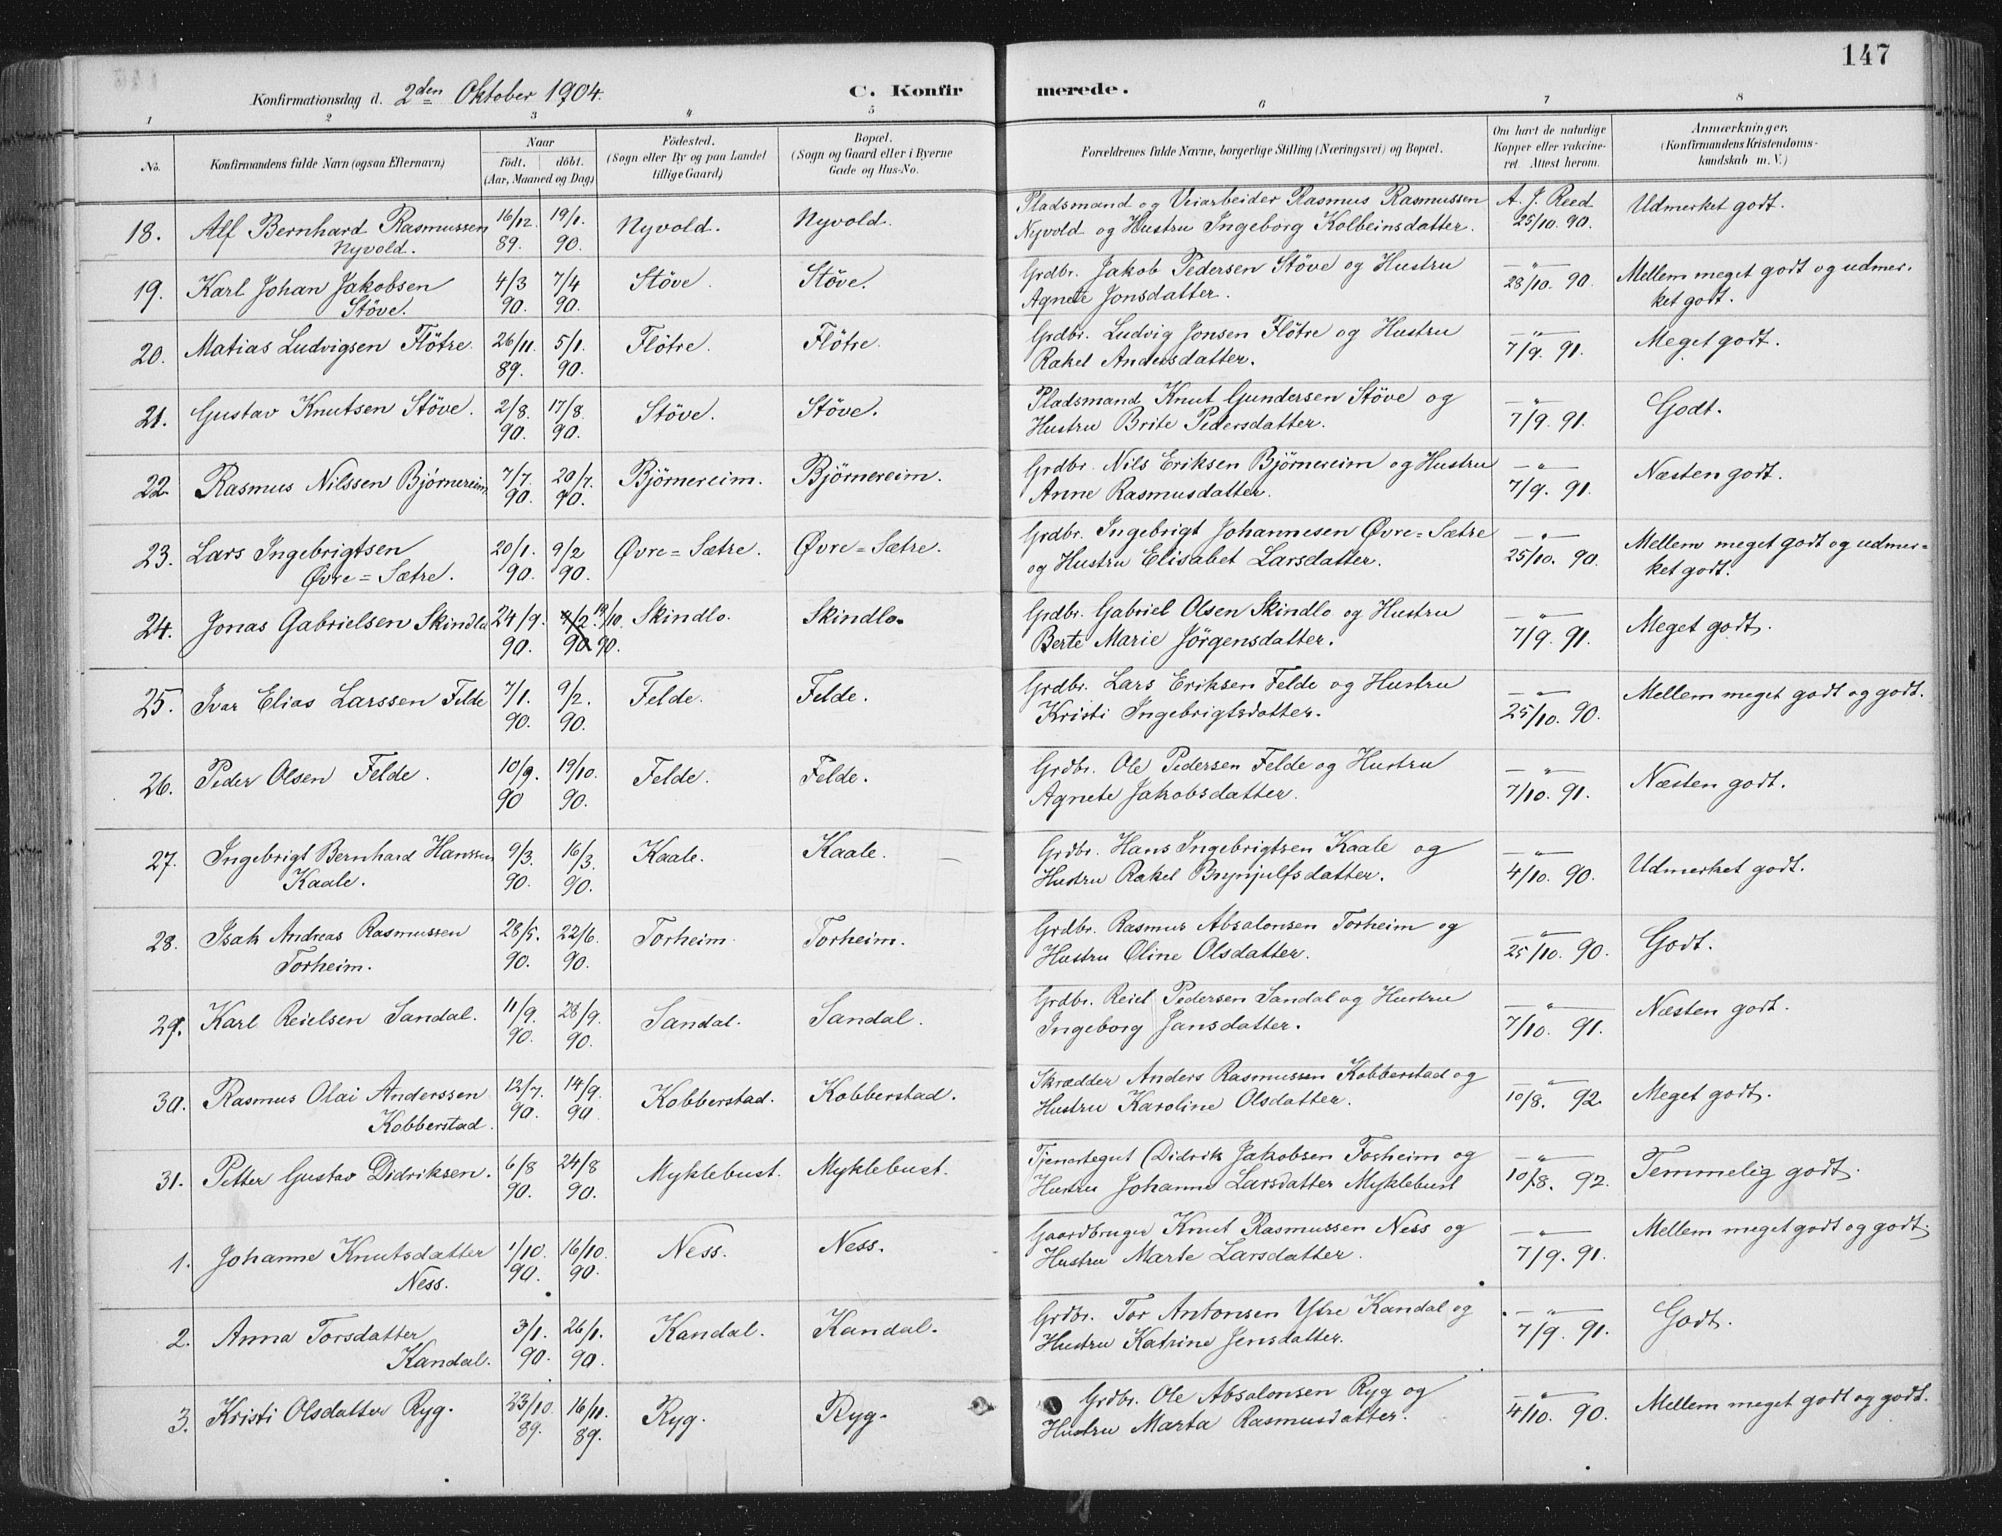 147
Konfirmationsdag d. 2den Oktober 1904. C. Konfirmerede.
1 2 3 4 5 6 7 8
No. Konfirmandens fulde Navn (ogsaa Efternavn) Naar født. døbt. (Aar, Maaned og Dag) Födested. (Sogn eller By og paa Landet tillige Gaard) Bopæl. (Sogn og Gaard eller i Byerne Gade og Hus-No. Forældrenes fulde Navne, borgerlige Stilling (Næringsvei) og Bopæl. Om havt de naturlige Kopper eller vakcineret. Attest herom. Anmærkninger. (Konfirmandens Kristendomskundskab m. V.)
18. Alf Bernhard Rasmussen 16/12. 19/1. Nyvold. Nyvold. Pladsmand og Veiarbeider Rasmus Rasmussen A. J. Reed Udmerket godt.
Nyvold. 89. 90. Nyvold og Hustru Ingeborg Kolbeinsdatter. 25/10. 90.
19. Karl Johan Jakobsen 4/3 7/4 Støve. Støve. Grdbr. Jakob Pedersen Støve og Hustru —"— Mellem meget godt og udmer-
Støve. 90. 90. Agnete Jonsdatter. 28/10. 90. ket godt.
20. Matias Ludvigsen Fløtre. 26/11. 5/1. Fløtre. Fløtre. Grdbr. Ludvig Jonsen Fløtre og Hustru —"— Meget godt.
89. 90. Rakel Andersdatter. 7/9. 91.
21. Gustav Knutsen Støve. 2/8. 17/8. Støve. Støve. Pladsmand Knut Gundersen Støve og —"— Godt.
90. 90. Hustru Brite Pedersdatter. 7/9. 91.
22. Rasmus Nilssen Bjørnereim 7/7. 20/7. Bjørnereim. Bjørnereim. Grdbr. Nils Eriksen Bjørnereim og Hustru —"— Næsten godt.
90. 90. Anne Rasmusdatter. 7/9. 91.
23. Lars Ingebrigtsen 20/1. 9/2 Øvre=Sætre. Øvre=Sætre. Grdbr. Ingebrigt Johannesen Øvre=Sætre —"— Mellem meget godt og udmer-
Øvre=Sætre. 90. 90. og Hustru Elisabet Larsdatter. 25/10. 90. ket godt.
24. Jonas Gabrielsen Skindlo 24/9. 19/10. Skindlo. Skindlo. Grdbr. Gabriel Olsen Skindlo og Hustru —"— Meget godt.
90. 90 90. Berte Marie Jørgensdatter. 7/9. 91.
25. Ivar Elias Larssen Felde 7/1. 9/2. Felde. Felde. Grdbr. Lars Eriksen Felde og Hustru —"— Mellem meget godt og godt.
90. 90. Kristi Ingebrigtsdatter. 25/10. 90.
26. Peder Olsen Felde. 10/9. 19/10. Felde. Felde. Grdbr. Ole Pedersen Felde og Hustru —"— Næsten godt.
90 90. Agnete Jakobsdatter. 7/10. 91.
27. Ingebrigt Bernhard Hanssen 9/3. 16/3 Kaale. Kaale. Grdbr. Hans Ingebrigtsen Kaale og —"— Udmerket godt.
Kaale. 90. 90. Hustru Rakel Brynjulfsdatter. 4/10. 90.
28. Isak Andreas Rasmussen 28/5. 22/6. Torheim. Torheim. Grdbr. Rasmus Absalonsen Torheim og —"— Godt.
Torheim. 90. 90. Hustru Oline Olsdatter. 25/10. 90.
29. Karl Reielsen Sandal. 11/9. 28/9. Sandal. Sandal. Grdbr. Reiel Pedersen Sandal og Hustru —"— Næsten godt.
90. 90. Ingeborg Jansdatter. 7/10. 91.
30. Rasmus Olai Anderssen 12/7. 14/9. Kobberstad. Kobberstad. Skrædder Anders Rasmussen Kobberstad og —"— Meget godt.
Kobberstad. 90. 90. Hustru Karoline Olsdatter. 10/8. 92.
31. Petter Gustav Didriksen. 6/8 24/8 Myklebust. Myklebust. Tjenertegut (Didrik Jakobsen Torheim og —"— Temmelig godt.
90. 90. Hustru Johanne Larsdatter Myklebust 10/8. 92.
1. Johanne Knutsdatter 1/10. 16/10. Ness. Ness. Gaardbruger Knut Rasmussen Ness og —"— Mellem meget godt og godt.
Ness. 90. 90. Hustru Marte Larsdatter. 7/9. 91.
2. Anna Torsdatter 3/1. 26/1. Kandal. Kandal. Grdbr. Tor Antonsen Ytre Kandal og —"— Godt.
Kandal. 90. 90. Hustru Katrine Jensdatter. 7/9. 91.
3. Kristi Olsdatter Ryg. 23/10. 16/11. Ryg. Ryg. Grdbr. Ole Absalonsen Ryg og —"— Mellem meget godt og godt.
89. 89. Hustru Marta Rasmusdatter. 4/10. 90.